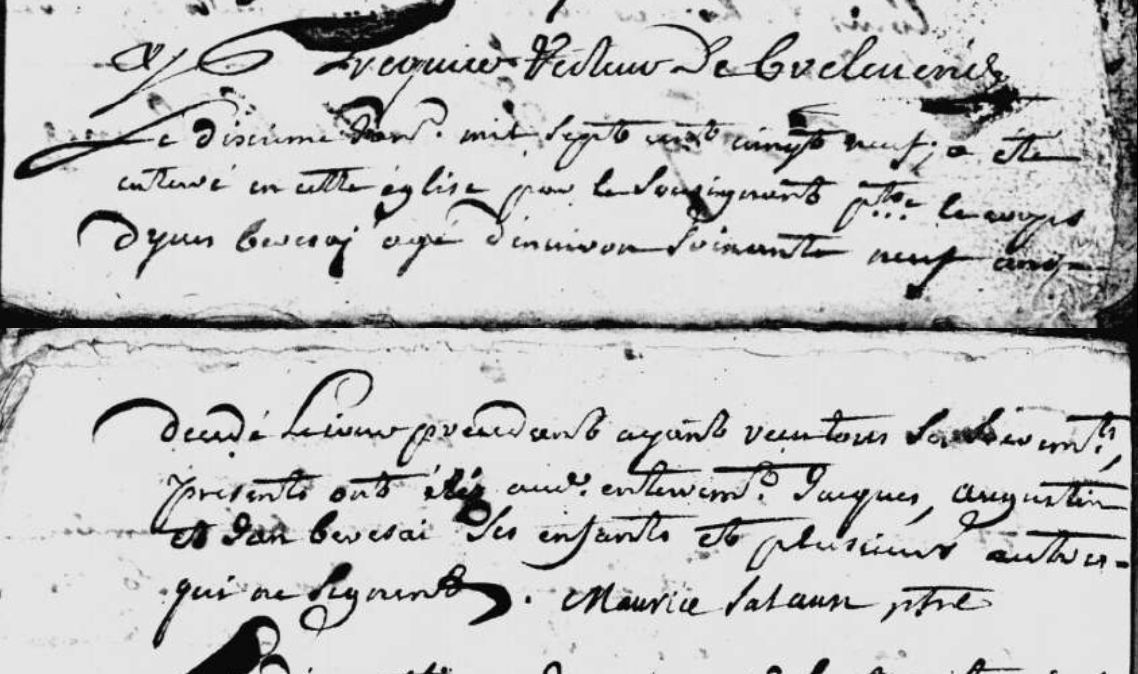 Recteur De Breleverés
Le dixieme Janr. mil sept cent cinqt neuf, a été
enterré en cette église par le Soussignant ptre. le corps
d'yves bercsai agé d'environ Soixante neuf ans,
decedé Le jour précedant ayant recu tous Les Sacremts,
presents ont étés aud. enterremt. Jacques, augustin
et Jan bercsai Ses enfants et plusieurs autres
qui ne Signent. Maurice Salaun ptre